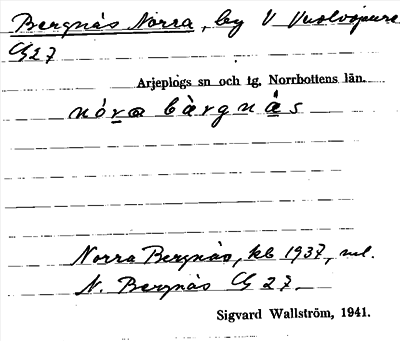 Bergnäs Norra, by V Vuolvojaure
G 27
Arjeplogs sn och tg. Norrbottens län.
nóra bàrgnäs
Norra Bergnäs, kb 1937,
N. Bergnäs G 27.
Sigvard Wallström, 1941.